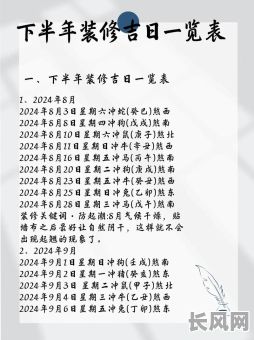 下半年装修吉日一览表
一、下半年装修吉日一览表
1、2024年8月
2024年8月3日星期六冲蛇(癸巳)煞西
2024年8月8日星期四冲狗(戊戌)煞南
2024年8月10日星期六冲鼠(庚子)煞北
2024年8月11日星期日冲牛(辛丑)煞西
2024年8月16日星期五冲马(丙午)煞南
2024年8月20日星期二冲狗(庚戌)煞南
2024年8月23日星期五冲牛(癸丑)煞西
2024年8月25日星期日冲兔(乙卯)煞东
2024年8月28日星期三冲马(戊午)煞南
装修关键词·防起潮:8月气候干燥，贴
墙布之后最好让自然阴干，这样就不会
出现起翘的现象了。
2、2024年9月
2024年9月1日星期日冲狗(壬戌)煞南
2024年9月2日星期一冲猪(癸亥)煞东
2024年9月3日 星期二冲鼠(甲子)煞北
2024年9月4日星期三冲牛(乙丑)煞西
2024年9月6日星期五冲兔(丁卯)煞东
长风网